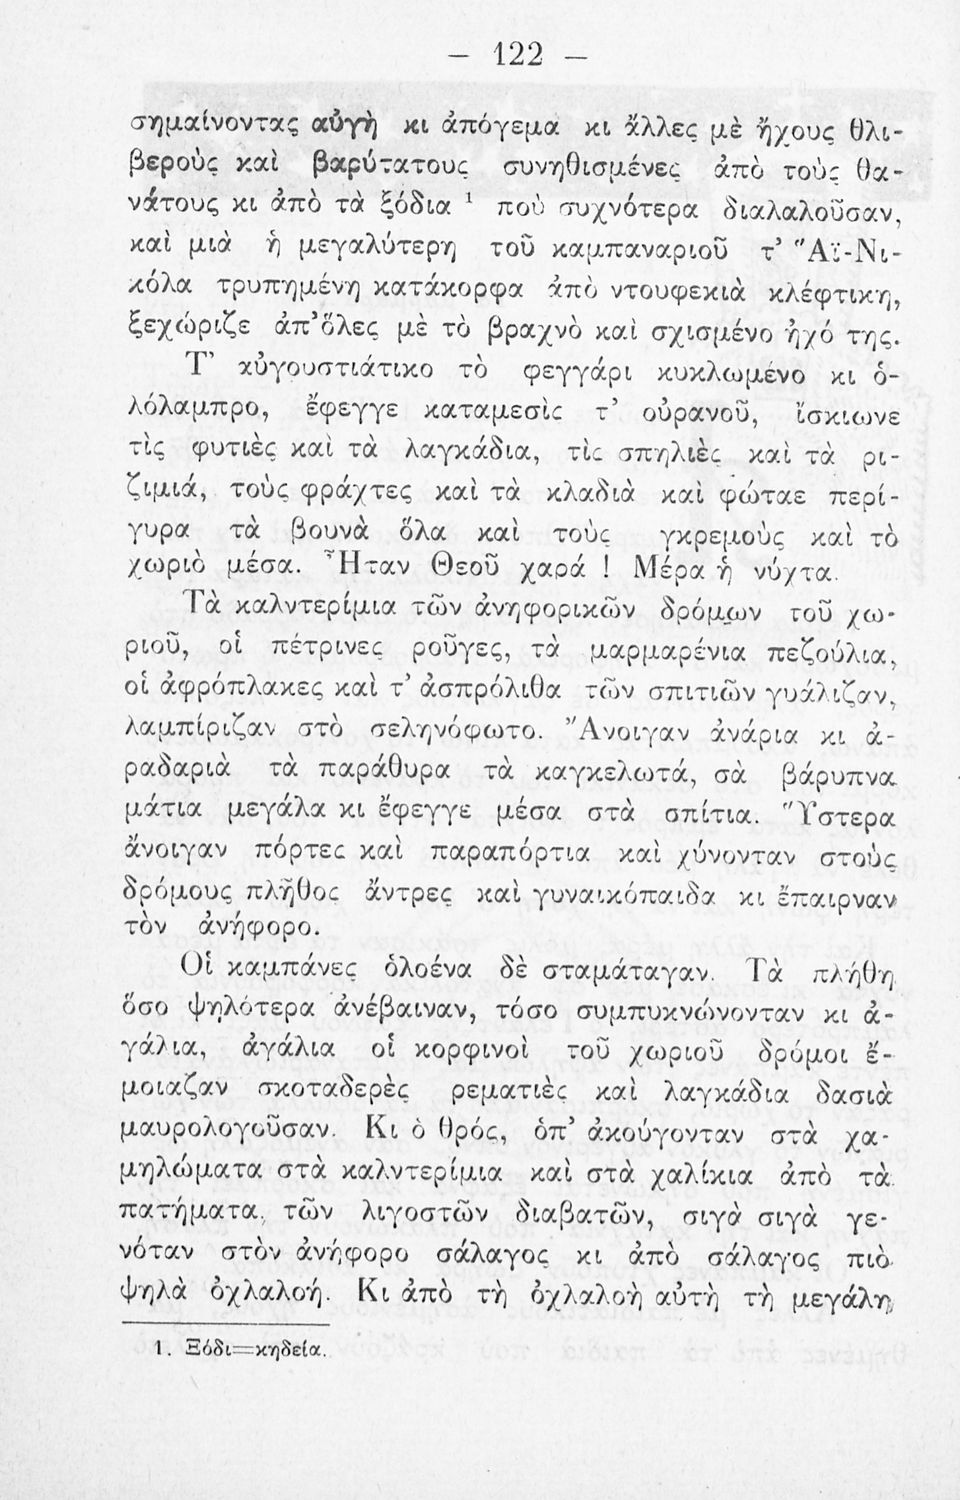 — 122 —
σημαίνοντας αὐγὴ κι ἀπόγεμα κι ἄλλες μὲ ἤχους θλι-
βεροὺς καὶ βαρύτατους συνηθισμένες ἀπὸ τοὺς θα-
νάτους κι ἀπὸ τὰ ξόδια ¹ ποὺ συχνότερα διαλαλοῦσαν,
καὶ μιὰ ἡ μεγαλύτερη τοῦ καμπαναριοῦ τ’ Ἅϊ-Νι-
κόλα τρυπημένη κατάκορφα ἀπὸ ντουφεκιὰ κλέφτικη,
ξεχώριζε ἀπ’ὅλες μὲ τὸ βραχνὸ καὶ σχισμένο ἠχό της.
Τ’ αὐγουστιάτικο τὸ φεγγάρι κυκλωμένο κι ὁ-
λόλαμπρο, ἔφεγγε καταμεσὶς τ’ οὐρανοῦ, ἴσκιωνε
τὶς φυτιὲς καὶ τὰ λαγκάδια, τὶς σπηλιὲς καὶ τὰ ρι-
ζιμιά, τοὺς φράχτες καὶ τὰ κλαδιὰ καὶ φώταε περί-
γυρα τὰ βουνὰ ὅλα καὶ τοὺς γκρεμοὺς καὶ τὸ
χωριὸ μέσα. Ἦταν Θεοῦ χαρά ! Μέρα ἡ νύχτα.
Τὰ καλντερίμια τῶν ἀνηφορικῶν δρόμων τοῦ χω-
ριοῦ, οἱ πέτρινες ροῦγες, τὰ μαρμαρένια πεζούλια,
οἱ ἀφρόπλακες καὶ τ’ ἀσπρόλιθα τῶν σπιτιῶν γυάλιζαν,
λαμπίριζαν στὸ σεληνόφωτο. Ἄνοιγαν ἀνάρια κι ἀ-
ραδαριὰ τὰ παράθυρα τὰ καγκελωτά, σὰ βάρυπνα
μάτια μεγάλα κι ἔφεγγε μέσα στὰ σπίτια. Ὕστερα
ἄνοιγαν πόρτες καὶ παραπόρτια καὶ χύνονταν στοὺς
δρόμους πλῆθος ἄντρες καὶ γυναικόπαιδα κι ἔπαιρναν
τὸν ἀνήφορο.
Οἱ καμπάνες ὁλοένα δὲ σταμάταγαν. Τὰ πλήθη
ὅσο ψηλότερα ἀνέβαιναν, τόσο συμπυκνώνονταν κι ἀ-
γάλια, ἀγάλια οἱ κορφινοὶ τοῦ χωριοῦ δρόμοι ἔ-
μοιαζαν σκοταδερὲς ρεματιὲς καὶ λαγκάδια δασιὰ
μαυρολογοῦσαν. Κι ὁ θρός, ὁπ’ ἀκούγονταν στὰ χα-
μηλώματα στὰ καλντερίμια καὶ στὰ χαλίκια ἀπὸ τὰ
πατήματα, τῶν λιγοστῶν διαβατῶν, σιγὰ σιγὰ γε-
νόταν στὸν ἀνήφορο σάλαγος κι ἀπὸ σάλαγος πιὸ
ψηλὰ ὀχλαλοή. Κι ἀπὸ τὴ ὀχλαλοὴ αὐτὴ τὴ μεγάλη,
1. Ξόδι=κηδεία.